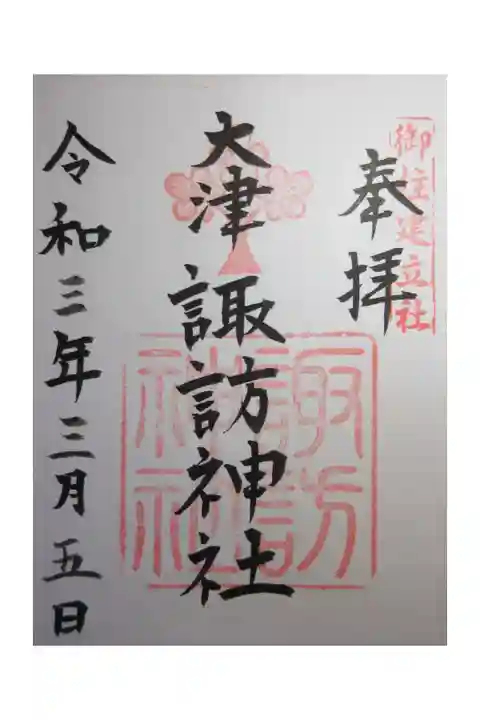 御柱建立社
奉拝
大津諏訪神社
諏訪神社
令和三年三月五日